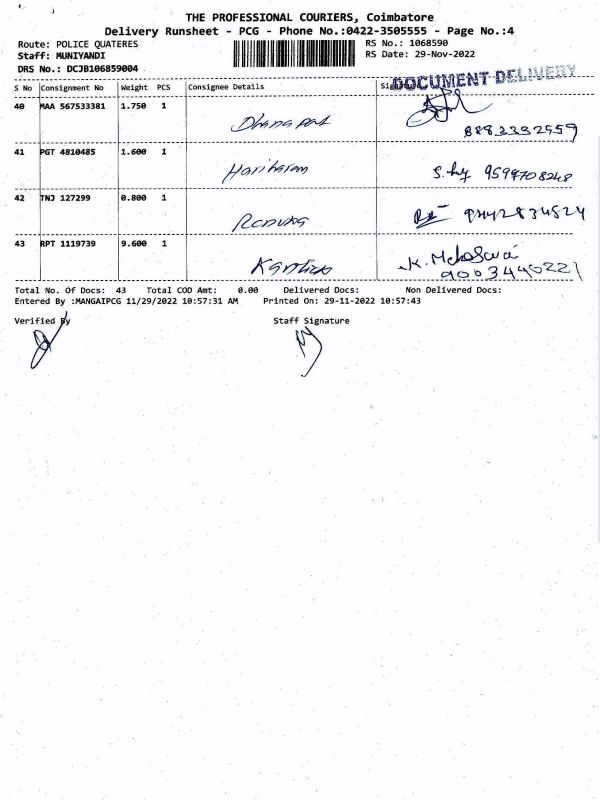 THE PROFESSIONAL COURIERS, Coimbatore
Delivery Runsheet - PCG - Phone No.:0422-3505555 - Page No.:4
Route: POLICE QUATERES RS No.: 1068590
Staff: MUNIYANDI RS Date: 29-Nov-2022
DRS No.: DCJB106859004
DOCUMENT DELIVERY
S No Consignment No Weight PCS Consignee Details
40 MAA 567533381 1.750 1
41 PGT 4810485 1.600 1 Hariharan
9599708248
42 TNJ 127299 0.800 1
43 RPT 1119739 9.600 1
9003440221
Total No. Of Docs: 43 Total COD Amt: 0.00 Delivered Docs: Non Delivered Docs:
Entered By :MANGAIPCG 11/29/2022 10:57:31 AM Printed On: 29-11-2022 10:57:43
Verified By Staff Signature